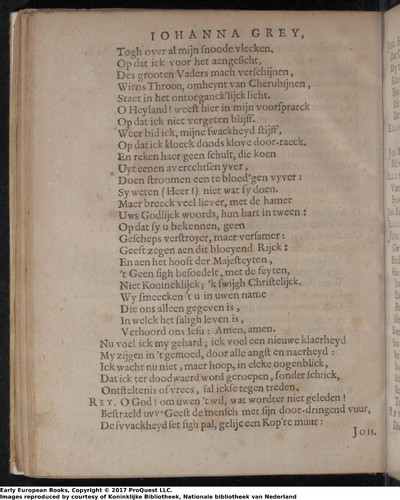 IOHANNA GREY,
Togh over al mijn snoode vlecken,
Op dat ick voor het aengesicht,
Des grooten Vaders mach verschijnen,
Wiens Throon, omheynt van Cherubijnen,
Staet in het ontoeganck'lijck licht.
O Heyland! weest hier in mijn voorspraeck
Op dat ick niet vergeten blijff.
Weer bid ick, mijne swackheyd stijff,
Op dat ick kloeck doods klove door-raeck.
En reken haer geen schult, die koen
Uyt eenen averechtsen yver,
Doen stroomen een te bloed'gen vyver:
Sy weten (Heer!) niet wat sy doen.
Maer breeck veel liever, met de hamer
Uws Godlijck woords, hun hart in tween:
Op dat sy u bekennen, geen
Gescheps verstroyer, maer versamer:
Geest zegen aen dit bloeyend Rijck:
En aen het hooft der Majesteyten,
't Geen sigh besoedelt, met de feyten,
Niet Konincklijck; 'k swijgh Christelijck.
Wy smeecken 't u in uwen name
Die ons alleen gegeven is,
In welck het saligh leven is,
Verhoord ons Iesu: Amen, amen.
Nu voel ick my gehard; ick voel een nieuwe klaerheyd
My zijgen in 't gemoed, door alle angst en naerheyd:
Ick wacht nu niet, maer hoop, in elcke oogenblick,
Dat ick ter doodwaerd word geroepen, sonder schrick,
Ontsteltenis of vrees, sal ickse tegen treden.
REY. O God! om uwen 't wil, wat wordter niet geleden!
Bestraeld uvv' Geest de mensch met sijn door-dringend vuur,
De svvackheyd set sigh pal, gelijc een Kop're muur:
JOH.
Early European Books, Copyright © 2017 ProQuest LLC.
Images reproduced by courtesy of Koninklijke Bibliotheek, Nationale bibliotheek van Nederland